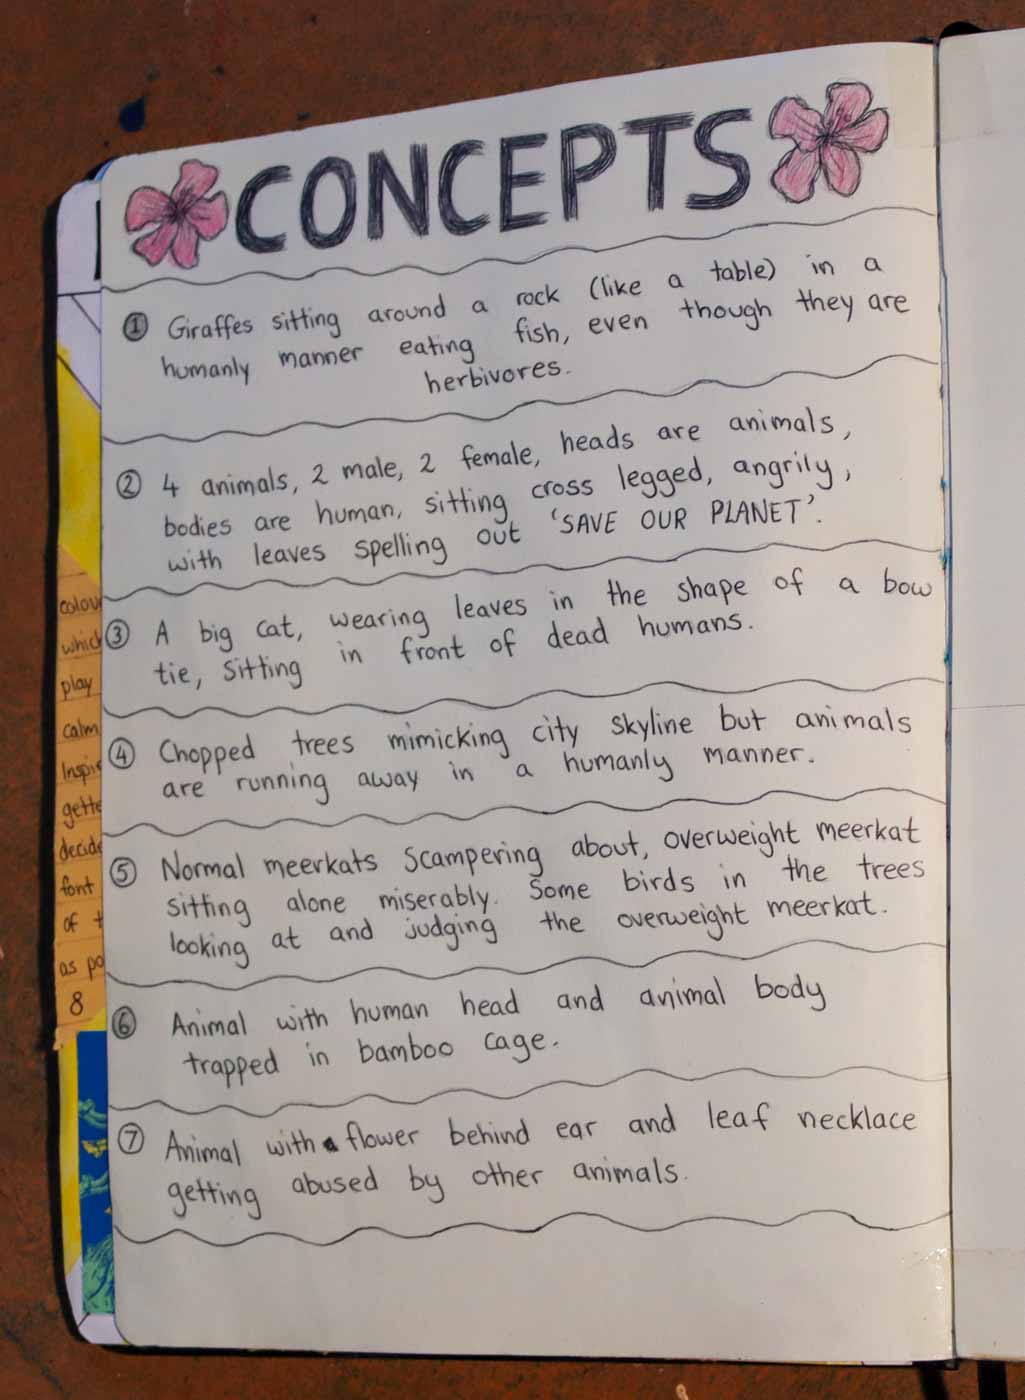 CONCEPTS
① Giraffes sitting around a rock (like a table) in a
humanly manner eating fish, even though they are
herbivores.
② 4 animals, 2 male, 2 female, heads are animals,
bodies are human, sitting cross legged, angrily,
with leaves spelling out 'SAVE OUR PLANET'.
③ A big cat, wearing leaves in the shape of a bow
tie, sitting in front of dead humans.
④ Chopped trees mimicking city skyline but animals
are running away in a humanly manner.
⑤ Normal meerkats scampering about, overweight meerkat
sitting alone miserably. Some birds in the trees
looking at and judging the overweight meerkat.
⑥ Animal with human head and animal body
trapped in bamboo cage.
⑦ Animal with flower behind ear and leaf necklace
getting abused by other animals.
play
calm
font
of
as
8